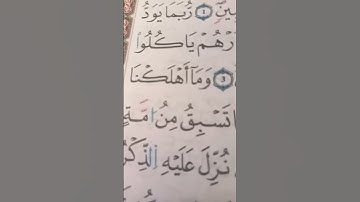 ـينٍ ١ رُّبَمَا يَوَدُّ
ـرْهُمْ يَاكُلُوا
٣ وَمَآ أَهْلَكْنَا
تَسْبِقُ مِنُ ا۟مَّةٍ
نُزِّلَ عَلَيْهِ اِ۬لذِّكْرُ